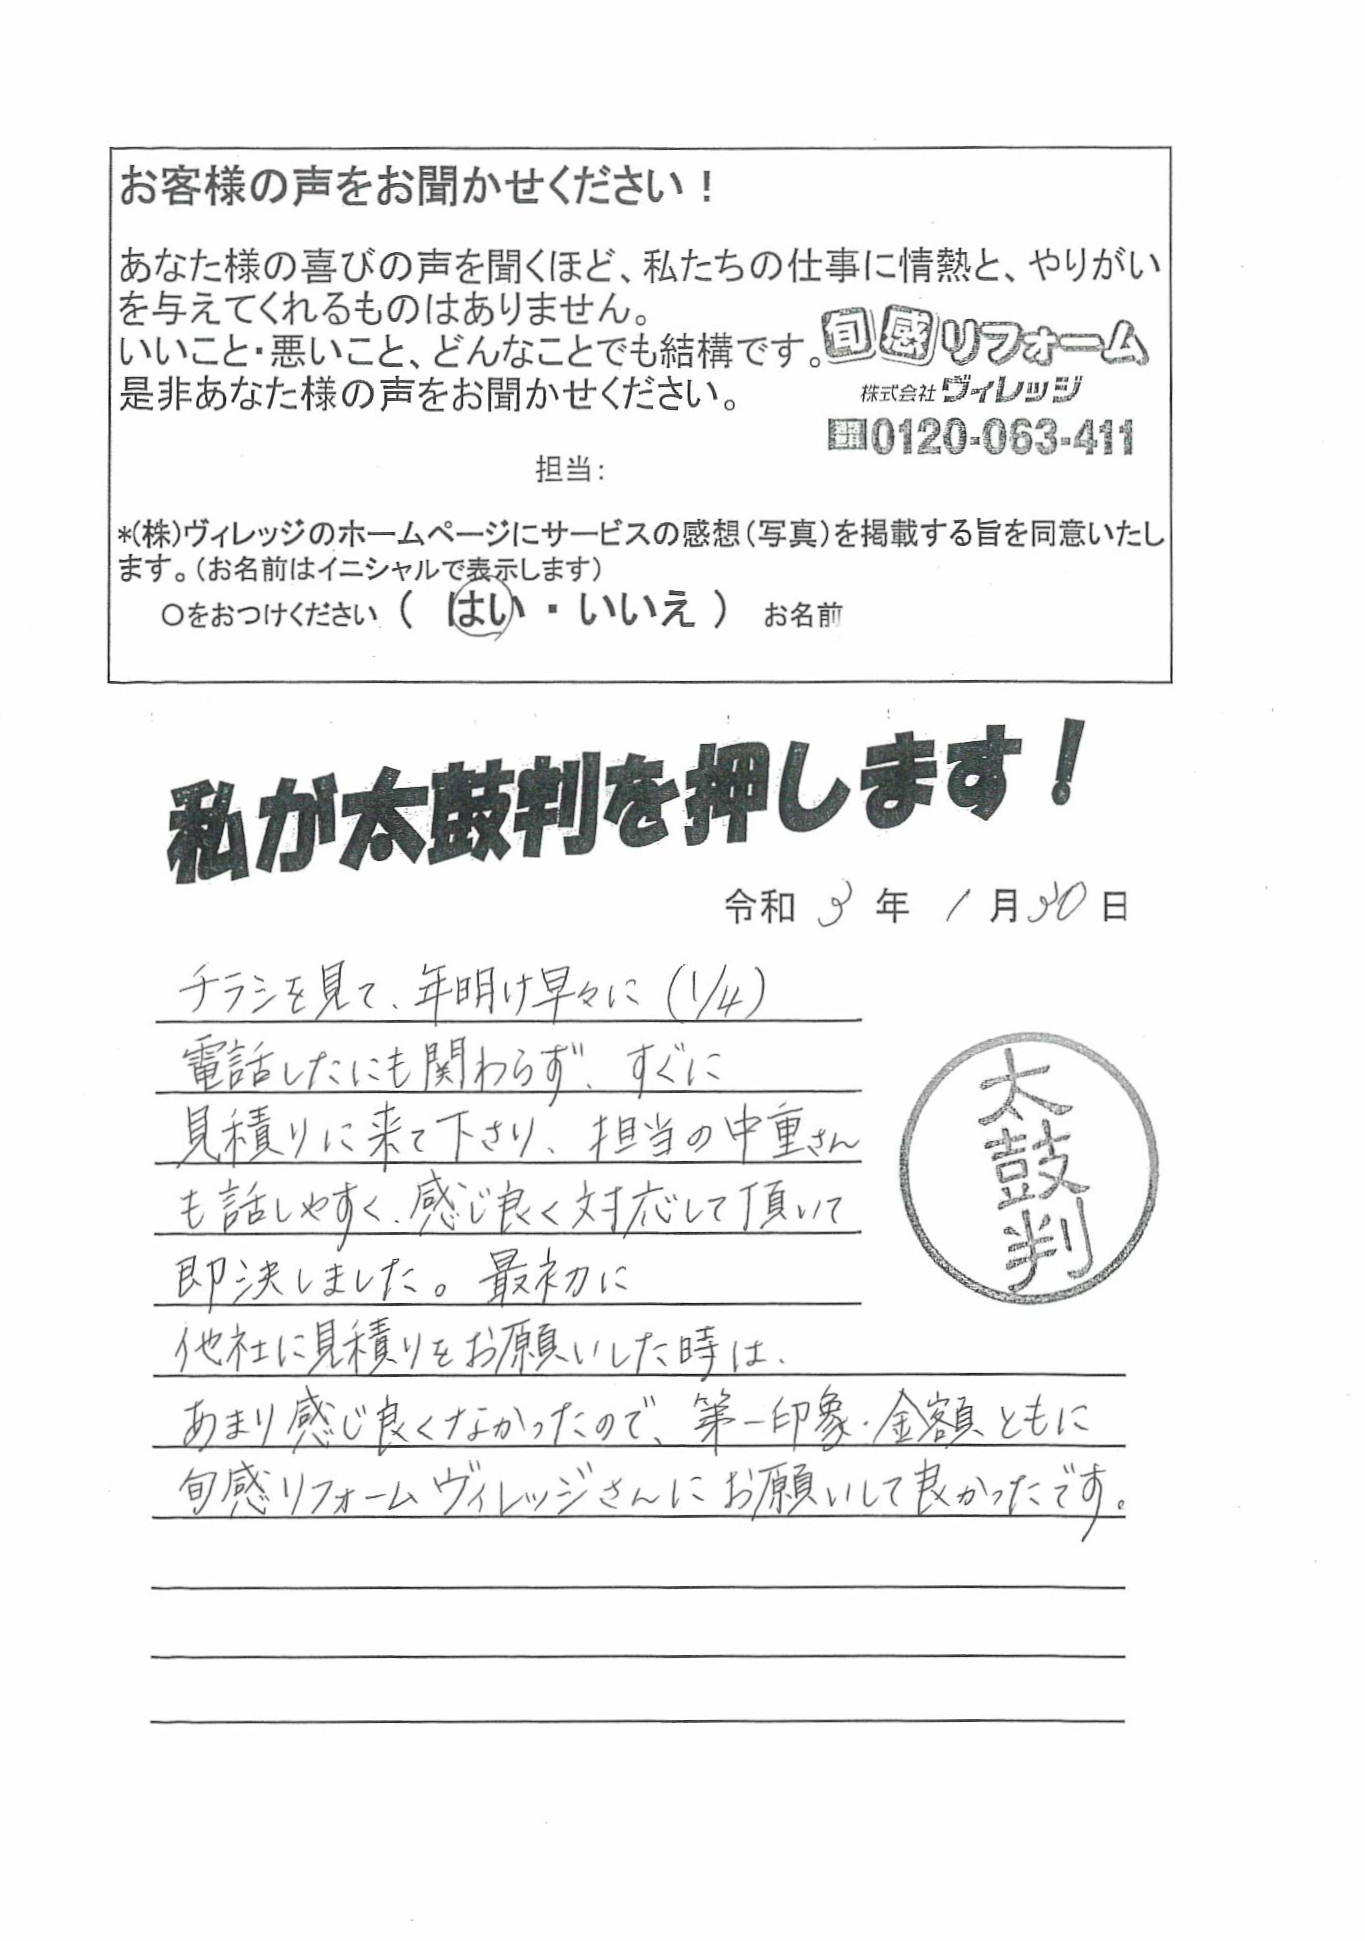 お客様の声をお聞かせください！
あなた様の喜びの声を聞くほど、私たちの仕事に情熱と、やりがい
を与えてくれるものはありません。
いいこと・悪いこと、どんなことでも結構です。
是非あなた様の声をお聞かせください。
旬感リフォーム
株式会社ヴィレッジ
0120-063-411
担当：
*(株)ヴィレッジのホームページにサービスの感想(写真)を掲載する旨を同意いたし
ます。(お名前はイニシャルで表示します)
○をおつけください（　はい・いいえ）　お名前
私が太鼓判を押します！
令和 3 年 1 月 30 日
チラシを見て、年明け早々に (1/4)
電話したにも関わらず、すぐに
見積りに来て下さり、担当の中重さん
も話しやすく、感じ良く対応して頂いて
即決しました。最初に
他社に見積りをお願いした時は、
あまり感じ良くなかったので、第一印象・金額ともに
旬感リフォームヴィレッジさんにお願いして良かったです。
太鼓判